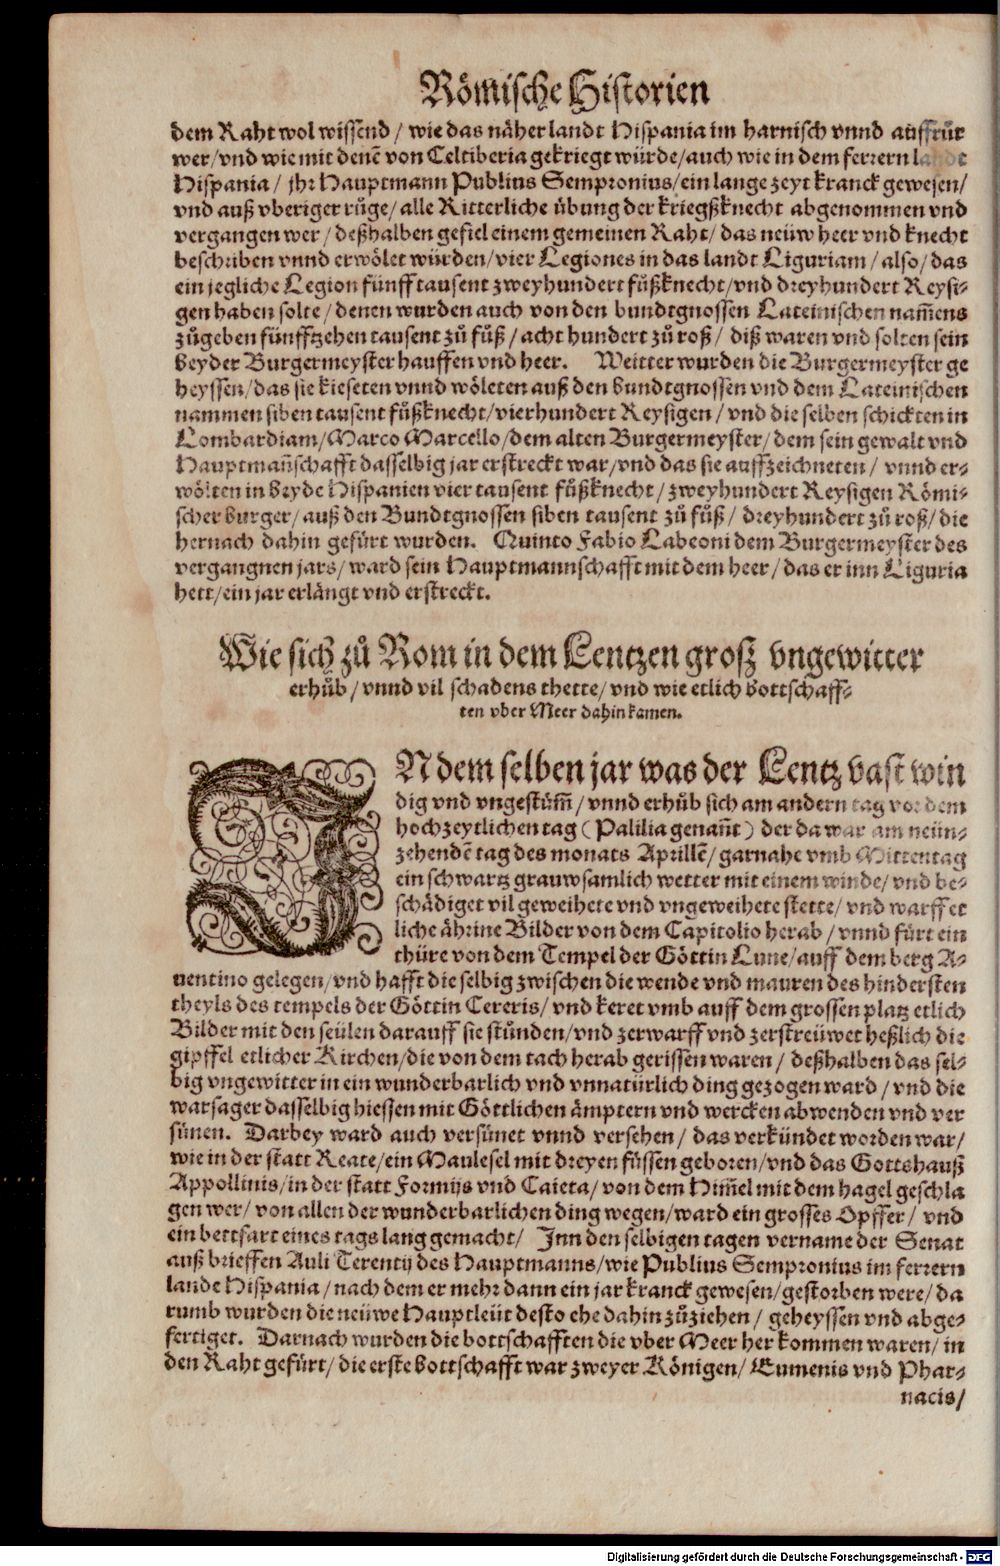 Römische Historien
dem Raht wol wissend / wie das näher landt Hispania im harnisch vnnd auffrür
wer/vnd wie mit denē von Celtiberia gekriegt würde/auch wie in dem ferrern landt
Hispania / jhr Hauptmann Publius Sempronius/ein lange zeyt kranck gewesen/
vnd auß vberiger růge/alle Ritterliche übung der kriegßknecht abgenommen vnd
vergangen wer / deßhalben gefiel einem gemeinen Raht/ das neüw heer vnd knecht
beschriben vnnd erwölet würden/vier Legiones in das landt Liguriam / also/ das
ein jegliche Legion fünff tausent zweyhundert fůßknecht/vnd dreyhundert Reysi-
gen haben solte / denen wurden auch von den bundtgnossen Lateinischen nam̄ens
zůgeben fünfftzehen tausent zů fůß / acht hundert zů roß / diß waren vnd solten sein
beyder Burgermeyster hauffen vnd heer. Weitter wurden die Burgermeyster ge
heyssen/das sie kieseten vnnd wöleten auß den bundtgnossen vnd dem Lateinischen
nammen siben tausent fůßknecht/vierhundert Reysigen / vnd die selben schickten in
Lombardiam/Marco Marcello/dem alten Burgermeyster/dem sein gewalt vnd
Hauptman̄schafft dasselbig jar erstreckt war/vnd das sie auffzeichneten / vnnd er-
wölten in beyde Hispanien vier tausent fůßknecht / zweyhundert Reysigen Römi-
scher burger/ auß den Bundtgnossen siben tausent zů fůß / dreyhundert zů roß/ die
hernach dahin gefürt wurden. Quinto Fabio Labeoni dem Burgermeyster des
vergangnen jars/ ward sein Hauptmannschafft mit dem heer / das er inn Liguria
hett/ein jar erlängt vnd erstreckt.
Wie sich zů Rom in dem Lentzen groß vngewitter
erhůb / vnnd vil schadens thette/ vnd wie etlich bottschaff-
ten vber Meer dahin kamen.
IN dem selben jar was der Lentz vast win
dig vnd vngestům̄ / vnnd erhůb sich am andern tag vor dem
hochzeytlichen tag (Palilia genan̄t) der da war am neün-
zehendē tag des monats Aprillē/ garnahe vmb Mittentag
ein schwartz grauwsamlich wetter mit einem winde/ vnd be-
schädiget vil geweihete vnd vngeweihete stette/ vnd warff et
liche ährine Bilder von dem Capitolio herab / vnnd fürt ein
thüre von dem Tempel der Göttin Lune/auff dem berg A-
uentino gelegen/vnd hafft die selbig zwischen die wende vnd mauren des hindersten
theyls des tempels der Göttin Cereris/ vnd keret vmb auff dem grossen platz etlich
Bilder mit den seülen darauff sie stůnden/vnd zerwarff vnd zerstreüwet heßlich die
gipffel etlicher Kirchen/die von dem tach herab gerissen waren / deßhalben das sel-
big vngewitter in ein wunderbarlich vnd vnnatürlich ding gezogen ward / vnd die
warsager dasselbig hiessen mit Göttlichen ämptern vnd wercken abwenden vnd ver
sünen. Darbey ward auch versünet vnnd versehen / das verkündet worden war/
wie in der statt Reate/ein Maulesel mit dreyen füssen geboren/vnd das Gottshauß
Appollinis/in der statt Formijs vnd Caieta/ von dem Him̄el mit dem hagel geschla
gen wer/ von allen der wunderbarlichen ding wegen/ward ein grosses Opffer / vnd
ein bettfart eines tags lang gemacht/ Inn den selbigen tagen vername der Senat
auß brieffen Auli Terentij des Hauptmanns/wie Publius Sempronius im ferrern
lande Hispania / nach dem er mehr dann ein jar kranck gewesen/gestorben were/ da
rumb wurden die neüwe Hauptleüt desto ehe dahin zůziehen / geheyssen vnd abge-
fertiget. Darnach wurden die bottschafften die vber Meer her kommen waren/ in
den Raht gefürt / die erste bottschafft war zweyer Königen/ Eumenis vnd Phar-
nacis/
Digitalisierung gefördert durch die Deutsche Forschungsgemeinschaft - DFG